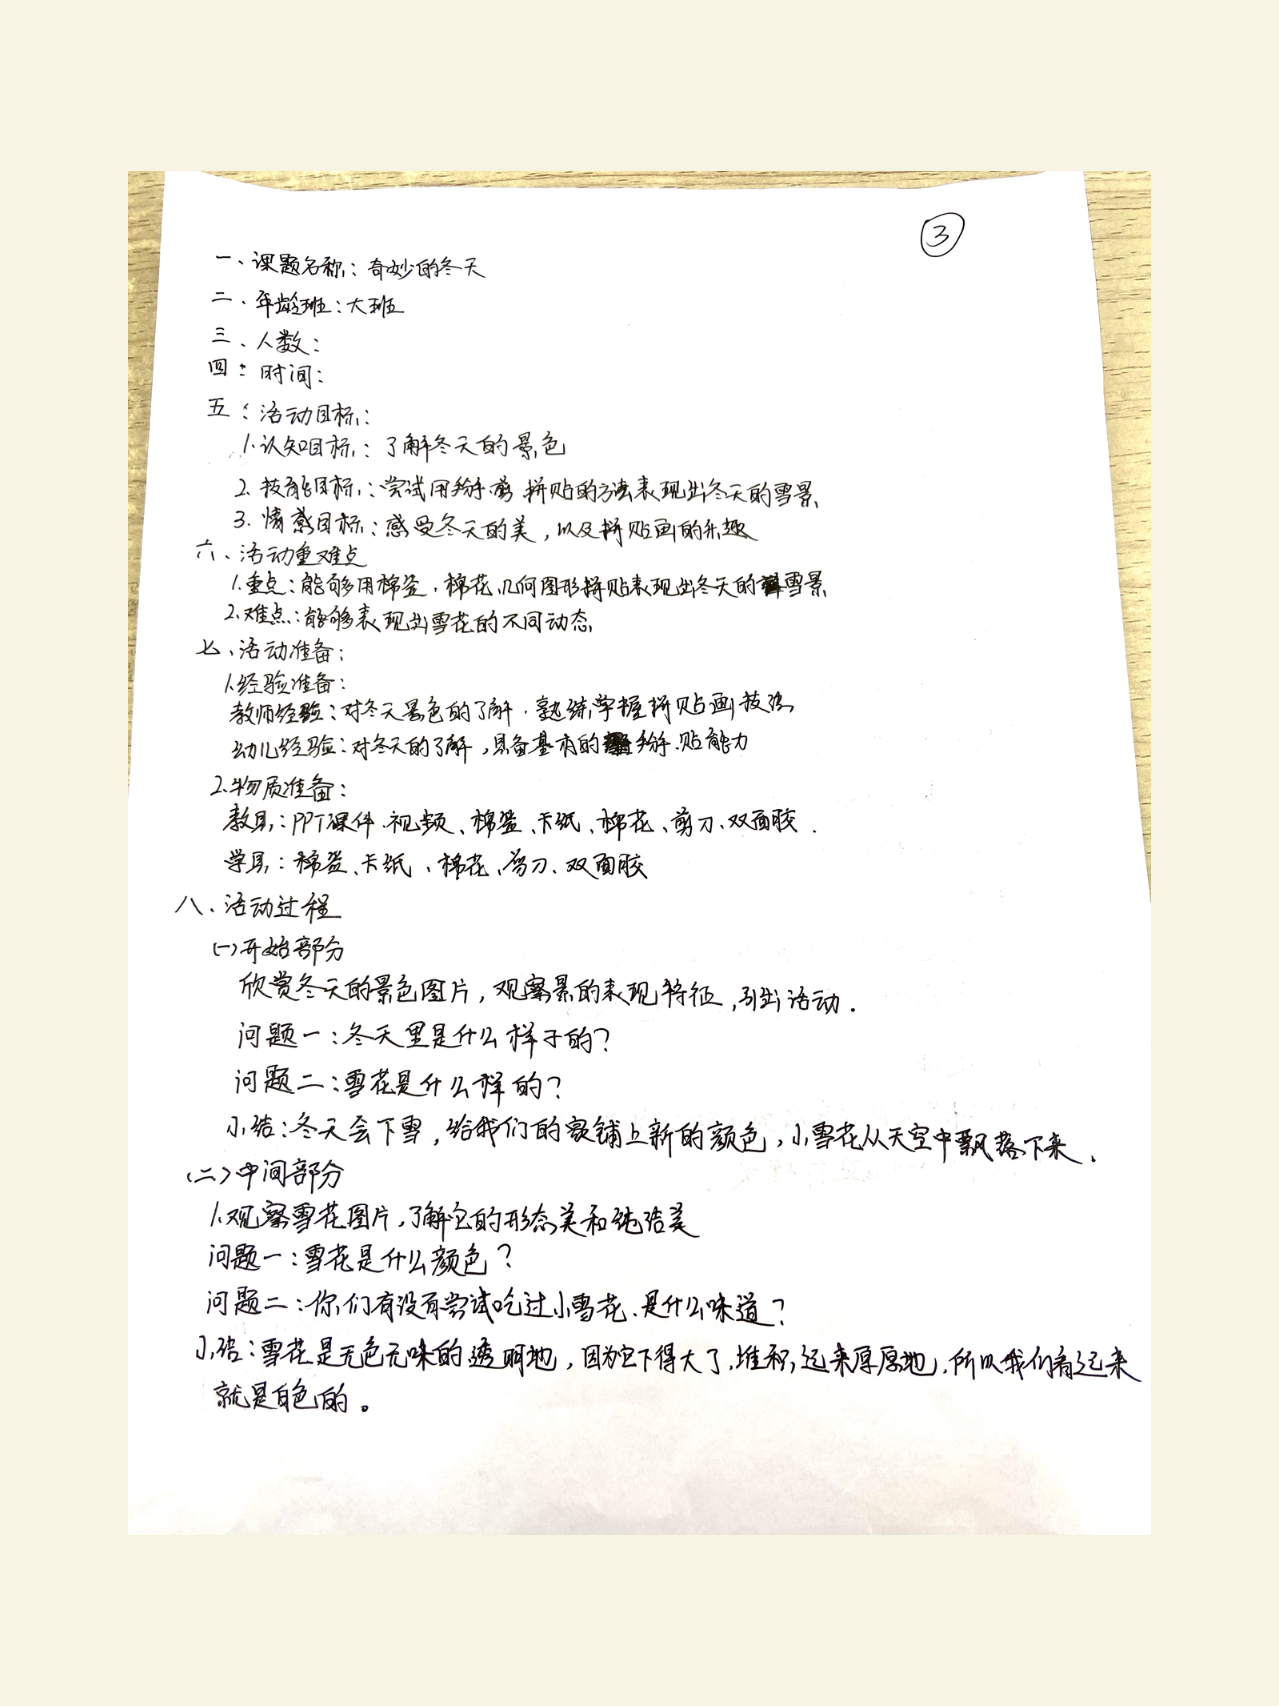 ③
一、课题名称：奇妙的冬天
二、年龄班：大班
三、人数：
四：时间：
五：活动目标：
1.认知目标：了解冬天的景色
2.技能目标：尝试用掰、剪 拼贴的方法表现出冬天的雪景
3.情感目标：感受冬天的美，以及拼贴画的乐趣
六、活动重难点
1.重点：能够用棉签，棉花、几何图形拼贴表现出冬天的雪景
2.难点：能够表现出雪花的不同动态
七、活动准备：
1.经验准备：
教师经验：对冬天景色的了解．熟练掌握拼贴画技法
幼儿经验：对冬天的了解，具备基本的掰．贴能力
2.物质准备：
教具：PPT课件．视频、棉签、卡纸、棉花、剪刀、双面胶．
学具：棉签、卡纸、棉花、剪刀、双面胶
八、活动过程
(一)开始部分
欣赏冬天的景色图片，观察景的表现特征，引出活动．
问题一：冬天里是什么样子的？
问题二：雪花是什么样的？
小结：冬天会下雪，给我们的家铺上新的颜色，小雪花从天空中飘落下来．
(二)中间部分
1.观察雪花图片，了解它的形态美和纯洁美
问题一：雪花是什么颜色？
问题二：你们有没有尝试吃过小雪花、是什么味道？
小结：雪花是无色无味的透明地，因为它下得大了，堆积起来厚厚地，所以我们看起来
就是白色的。